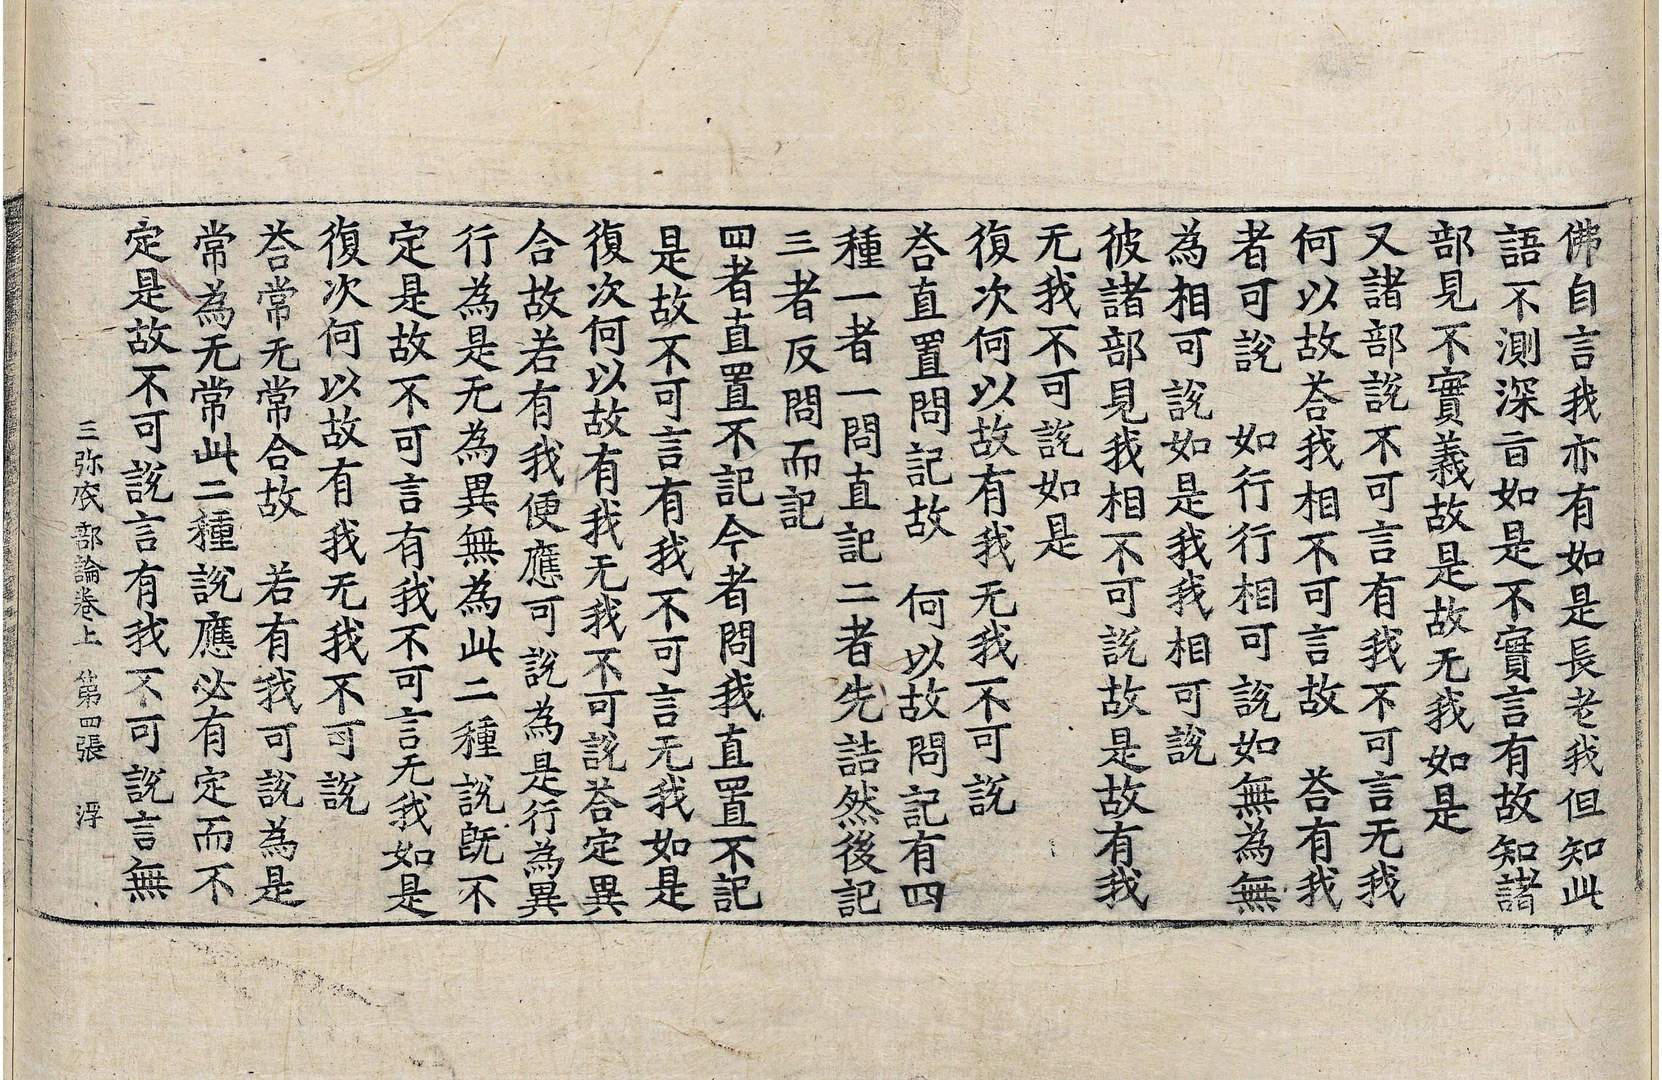 佛自言我亦有如是長老我但知此
語不測深言如是不實言有故知諸
部見不實義故是故无我如是
又諸部說不可言有我不可言无我
何以故荅我相不可言故　荅有我
者可說　如行行相可說如無為無
為相可說如是我我相可說
彼諸部見我相不可說故是故有我
无我不可說如是
復次何以故有我无我不可說
荅直置問記故　何以故問記有四
種一者一問直記二者先詰然後記
三者反問而記
四者直置不記今者問我直置不記
是故不可言有我不可言无我如是
復次何以故有我无我不可說荅定異
合故若有我便應可說為是行為異
行為是无為異無為此二種說既不
定是故不可言有我不可言无我如是
復次何以故有我无我不可說
荅常无常合故　若有我可說為是
常為无常此二種說應必有定而不
定是故不可說言有我不可說言無
三弥底部論卷上　第四張　浮